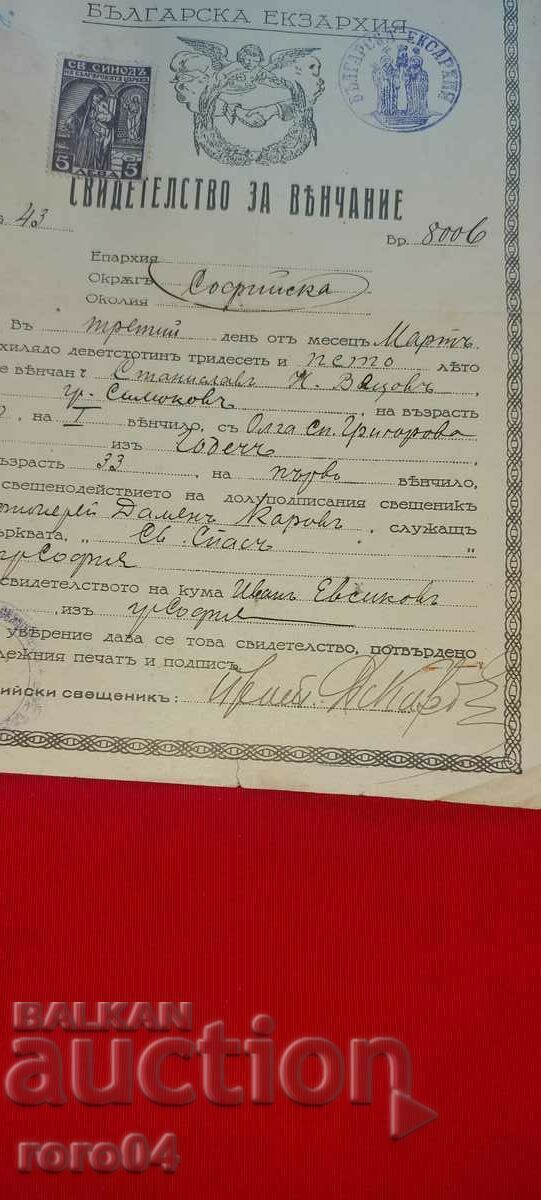 БЪЛГАРСКА ЕКЗАРХИЯ
БЪЛГАРСКА ЕКСАРХИЯ
СВ. СИНОДЪ
НА БЪЛГАРСКАТА ЦЪРКВА
5 ЛЕВА 5
СВИДЕТЕЛСТВО ЗА ВѢНЧАНИЕ
43
Бр. 8006
Епархия
Окрѫгъ Софийска
Околия
Въ третий день отъ месецъ Мартъ
хилядо деветстотинъ тридесеть и пето лѣто
е вѣнчанъ Станиславъ Н.
гр. на възрасть
, на I вѣнчило, съ Олга Сп. Григорова
изъ Годечъ
ъзрасть 33 на първо вѣнчило,
свещенодействието на долуподписания свещеникъ
Даменъ Каровъ, служащъ
ърквата, „ Св. Спасъ "
гр София
свидетелството на кума Иванъ Евсиковъ
изъ гр София
увѣрение дава се това свидетелство, потвърдено
лежния печатъ и подписъ.
ийски свещеникъ:
BALKAN
auction
roro04